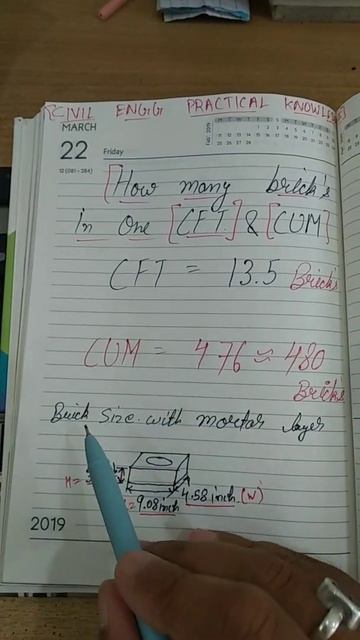 CIVIL ENGG PRACTICAL KNOWLE
MARCH
22 Friday
12 (081-284)
Feb 2019
[How many brick's
In One [CFT] & [CUM]
CFT = 13.5 Brick's
CUM = 476 ≈ 480
Bricks
Brick Size with mortar layer
H =
4.58 inch (W)
= 9.08 inch
2019